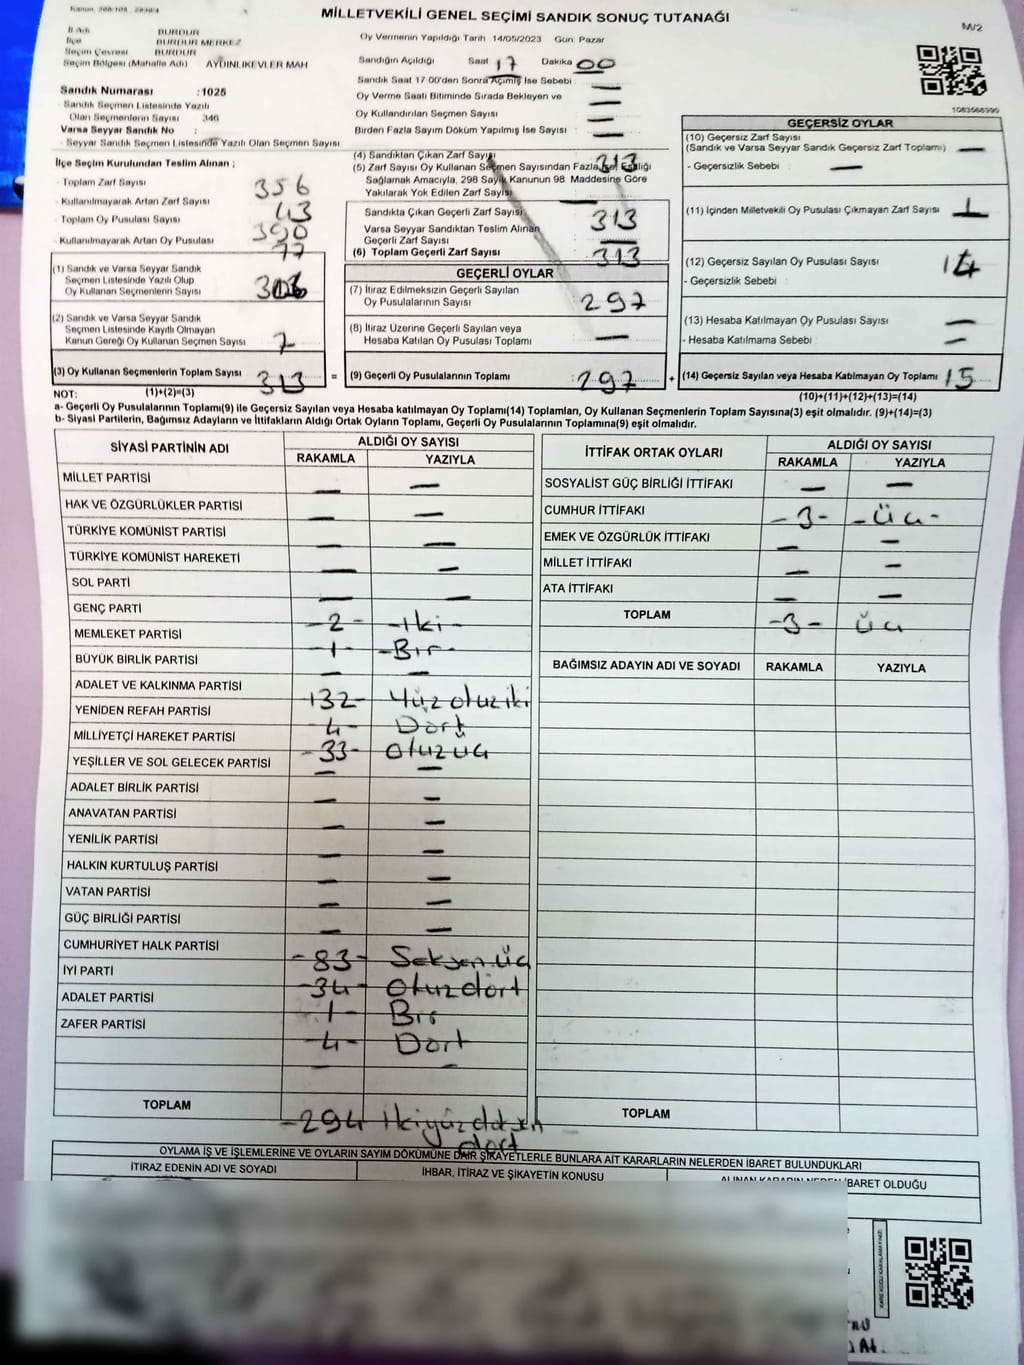 MİLLETVEKİLİ GENEL SEÇİMİ SANDIK SONUÇ TUTANAĞI
M/2
İl Adı BURDUR
İlçe BURDUR MERKEZ
Seçim Çevresi BURDUR
Seçim Bölgesi (Mahalle Adı) AYDINLIKEVLER MAH
Sandık Numarası :1025
- Sandık Seçmen Listesinde Yazılı
Olan Seçmenlerin Sayısı 346
Varsa Seyyar Sandık No :
- Seyyar Sandık Seçmen Listesinde Yazılı Olan Seçmen Sayısı
İlçe Seçim Kurulundan Teslim Alınan ;
- Toplam Zarf Sayısı 356
- Kullanılmayarak Artan Zarf Sayısı 43
- Toplam Oy Pusulası Sayısı 390
- Kullanılmayarak Artan Oy Pusulası 77
(1) Sandık ve Varsa Seyyar Sandık
Seçmen Listesinde Yazılı Olup
Oy Kullanan Seçmenlerin Sayısı
(2) Sandık ve Varsa Seyyar Sandık
Seçmen Listesinde Kayıtlı Olmayan
Kanun Gereği Oy Kullanan Seçmen Sayısı 7
(3) Oy Kullanan Seçmenlerin Toplam Sayısı 313 =
(1)+(2)=(3)
Oy Vermenin Yapıldığı Tarih 14/05/2023 Gün Pazar
Sandığın Açıldığı Saat 17 Dakika 00
Sandık Saat 17:00'den Sonra Açılmış İse Sebebi : —
Oy Verme Saati Bitiminde Sırada Bekleyen ve
Oy Kullandırılan Seçmen Sayısı —
Birden Fazla Sayım Döküm Yapılmış İse Sayısı : —
(4) Sandıktan Çıkan Zarf Sayısı 313
(5) Zarf Sayısı Oy Kullanan Seçmen Sayısından Fazla İse, Eşitliği
Sağlamak Amacıyla, 298 Sayılı Kanunun 98. Maddesine Göre
Yakılarak Yok Edilen Zarf Sayısı —
Sandıkta Çıkan Geçerli Zarf Sayısı 313
Varsa Seyyar Sandıktan Teslim Alınan
Geçerli Zarf Sayısı —
(6) Toplam Geçerli Zarf Sayısı 313
GEÇERLİ OYLAR
(7) İtiraz Edilmeksizin Geçerli Sayılan
Oy Pusulalarının Sayısı 297
(8) İtiraz Üzerine Geçerli Sayılan veya
Hesaba Katılan Oy Pusulası Toplamı —
(9) Geçerli Oy Pusulalarının Toplamı : 297 +
1083568390
GEÇERSİZ OYLAR
(10) Geçersiz Zarf Sayısı
(Sandık ve Varsa Seyyar Sandık Geçersiz Zarf Toplamı) —
- Geçersizlik Sebebi : —
(11) İçinden Milletvekili Oy Pusulası Çıkmayan Zarf Sayısı 1
(12) Geçersiz Sayılan Oy Pusulası Sayısı 14
- Geçersizlik Sebebi :
(13) Hesaba Katılmayan Oy Pusulası Sayısı —
- Hesaba Katılmama Sebebi : —
(14) Geçersiz Sayılan veya Hesaba Katılmayan Oy Toplamı 15
(10)+(11)+(12)+(13)=(14)
NOT:
a- Geçerli Oy Pusulalarının Toplamı(9) ile Geçersiz Sayılan veya Hesaba katılmayan Oy Toplamı(14) Toplamları, Oy Kullanan Seçmenlerin Toplam Sayısına(3) eşit olmalıdır. (9)+(14)=(3)
b- Siyasi Partilerin, Bağımsız Adayların ve İttifakların Aldığı Ortak Oyların Toplamı, Geçerli Oy Pusulalarının Toplamına(9) eşit olmalıdır.
SİYASİ PARTİNİN ADI ALDIĞI OY SAYISI
RAKAMLA YAZIYLA
MİLLET PARTİSİ — —
HAK VE ÖZGÜRLÜKLER PARTİSİ — —
TÜRKİYE KOMÜNİST PARTİSİ — —
TÜRKİYE KOMÜNİST HAREKETİ — —
SOL PARTİ — —
GENÇ PARTİ -2- -İki-
MEMLEKET PARTİSİ -1- -Bir-
BÜYÜK BİRLİK PARTİSİ — —
ADALET VE KALKINMA PARTİSİ -132- Yüz otuz iki
YENİDEN REFAH PARTİSİ 4- Dört
MİLLİYETÇİ HAREKET PARTİSİ -33- Otuz üç
YEŞİLLER VE SOL GELECEK PARTİSİ — —
ADALET BİRLİK PARTİSİ — —
ANAVATAN PARTİSİ — —
YENİLİK PARTİSİ — —
HALKIN KURTULUŞ PARTİSİ — —
VATAN PARTİSİ — —
GÜÇ BİRLİĞİ PARTİSİ — —
CUMHURİYET HALK PARTİSİ -83- Seksen üç
İYİ PARTİ -34- Otuz dört
ADALET PARTİSİ -1- Bir
ZAFER PARTİSİ -4- Dört
— —
TOPLAM -294 ikiyüz doksen
dört
İTTİFAK ORTAK OYLARI ALDIĞI OY SAYISI
RAKAMLA YAZIYLA
SOSYALİST GÜÇ BİRLİĞİ İTTİFAKI — —
CUMHUR İTTİFAKI -3- -Üç-
EMEK VE ÖZGÜRLÜK İTTİFAKI — —
MİLLET İTTİFAKI — —
ATA İTTİFAKI — —
TOPLAM -3- Üç
BAĞIMSIZ ADAYIN ADI VE SOYADI RAKAMLA YAZIYLA
TOPLAM
OYLAMA İŞ VE İŞLEMLERİNE VE OYLARIN SAYIM DÖKÜMÜNE DAİR ŞİKAYETLERLE BUNLARA AİT KARARLARIN NELERDEN İBARET BULUNDUKLARI
İTİRAZ EDENİN ADI VE SOYADI İHBAR, İTİRAZ VE ŞİKAYETİN KONUSU ALINAN KARARIN NEDEN İBARET OLDUĞU